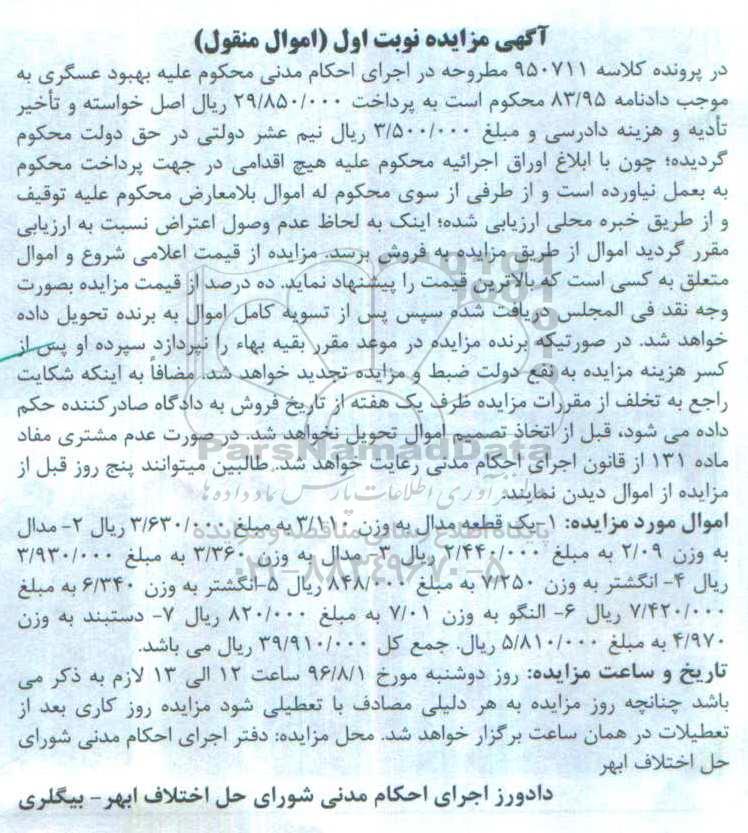 آگهی مزایده نوبت اول (اموال منقول)
در پرونده کلاسه ۹۵۰۷۱۱ مطروحه در اجرای احکام مدنی محکوم علیه بهبود عسگری به
موجب دادنامه ۸۳/۹۵ محکوم است به پرداخت ۲۹/۸۵۰/۰۰۰ ریال اصل خواسته و تأخیر
تأدیه و هزینه دادرسی و مبلغ ۳/۵۰۰/۰۰۰ ریال نیم عشر دولتی در حق دولت محکوم
گردیده؛ چون با ابلاغ اوراق اجرائیه محکوم علیه هیچ اقدامی در جهت پرداخت محکوم
به بعمل نیاورده است و از طرفی از سوی محکوم له اموال بلامعارض محکوم علیه توقیف
و از طریق خبره محلی ارزیابی شده؛ اینک به لحاظ عدم وصول اعتراض نسبت به ارزیابی
مقرر گردید اموال از طریق مزایده به فروش برسد. مزایده از قیمت اعلامی شروع و اموال
متعلق به کسی است که بالاترین قیمت را پیشنهاد نماید. ده درصد از قیمت مزایده بصورت
وجه نقد فی المجلس دریافت شده سپس پس از تسویه کامل اموال به برنده تحویل داده
خواهد شد. در صورتیکه برنده مزایده در موعد مقرر بقیه بهاء را نپردازد سپرده او پس از
کسر هزینه مزایده به نفع دولت ضبط و مزایده تجدید خواهد شد. مضافاً به اینکه شکایت
راجع به تخلف از مقررات مزایده ظرف یک هفته از تاریخ فروش به دادگاه صادرکننده حکم
داده می شود، قبل از اتخاذ تصمیم اموال تحویل نخواهد شد. در صورت عدم مشتری مفاد
ماده ۱۳۱ از قانون اجرای احکام مدنی رعایت خواهد شد. طالبین میتوانند پنج روز قبل از
مزایده از اموال دیدن نمایند.
اموال مورد مزایده: ۱-یک قطعه مدال به وزن ۳/۱۱۰ به مبلغ ۳/۶۳۰/۰۰۰ ریال ۲- مدال
به وزن ۲/۰۹ به مبلغ ۲/۴۴۰/۰۰۰ ریال ۳- مدال به وزن ۳/۳۶۰ به مبلغ ۳/۹۳۰/۰۰۰
ریال ۴- انگشتر به وزن ۷/۲۵۰ به مبلغ ۸۴۸/۰۰۰ ریال ۵-انگشتر به وزن ۶/۳۴۰ به مبلغ
۷/۴۲۰/۰۰۰ ریال ۶- النگو به وزن ۷/۰۱ به مبلغ ۸۲۰/۰۰۰ ریال ۷- دستبند به وزن
۴/۹۷۰ به مبلغ ۵/۸۱۰/۰۰۰ ریال. جمع کل ۳۹/۹۱۰/۰۰۰ ریال می باشد.
تاریخ و ساعت مزایده: روز دوشنبه مورخ ۹۶/۸/۱ ساعت ۱۲ الی ۱۳ لازم به ذکر می
باشد چنانچه روز مزایده به هر دلیلی مصادف با تعطیلی شود مزایده روز کاری بعد از
تعطیلات در همان ساعت برگزار خواهد شد. محل مزایده: دفتر اجرای احکام مدنی شورای
حل اختلاف ابهر
دادورز اجرای احکام مدنی شورای حل اختلاف ابهر- بیگلری
ParsNamadData
پایگاه اطلاع رسانی مناقصه و مزایده
۰۲۱-۸۸۳۴۹۶۷۰-۵